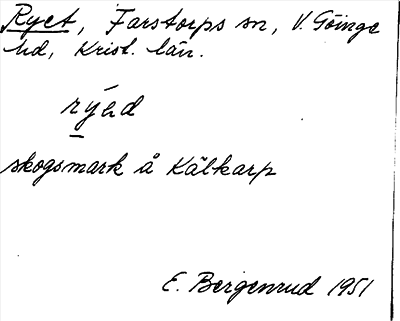 Ryet, Farstorps sn, V. Göinge
hd, Krist. län.
rýəd
skogsmark å Kälkarp
E. Bergenrud 1951